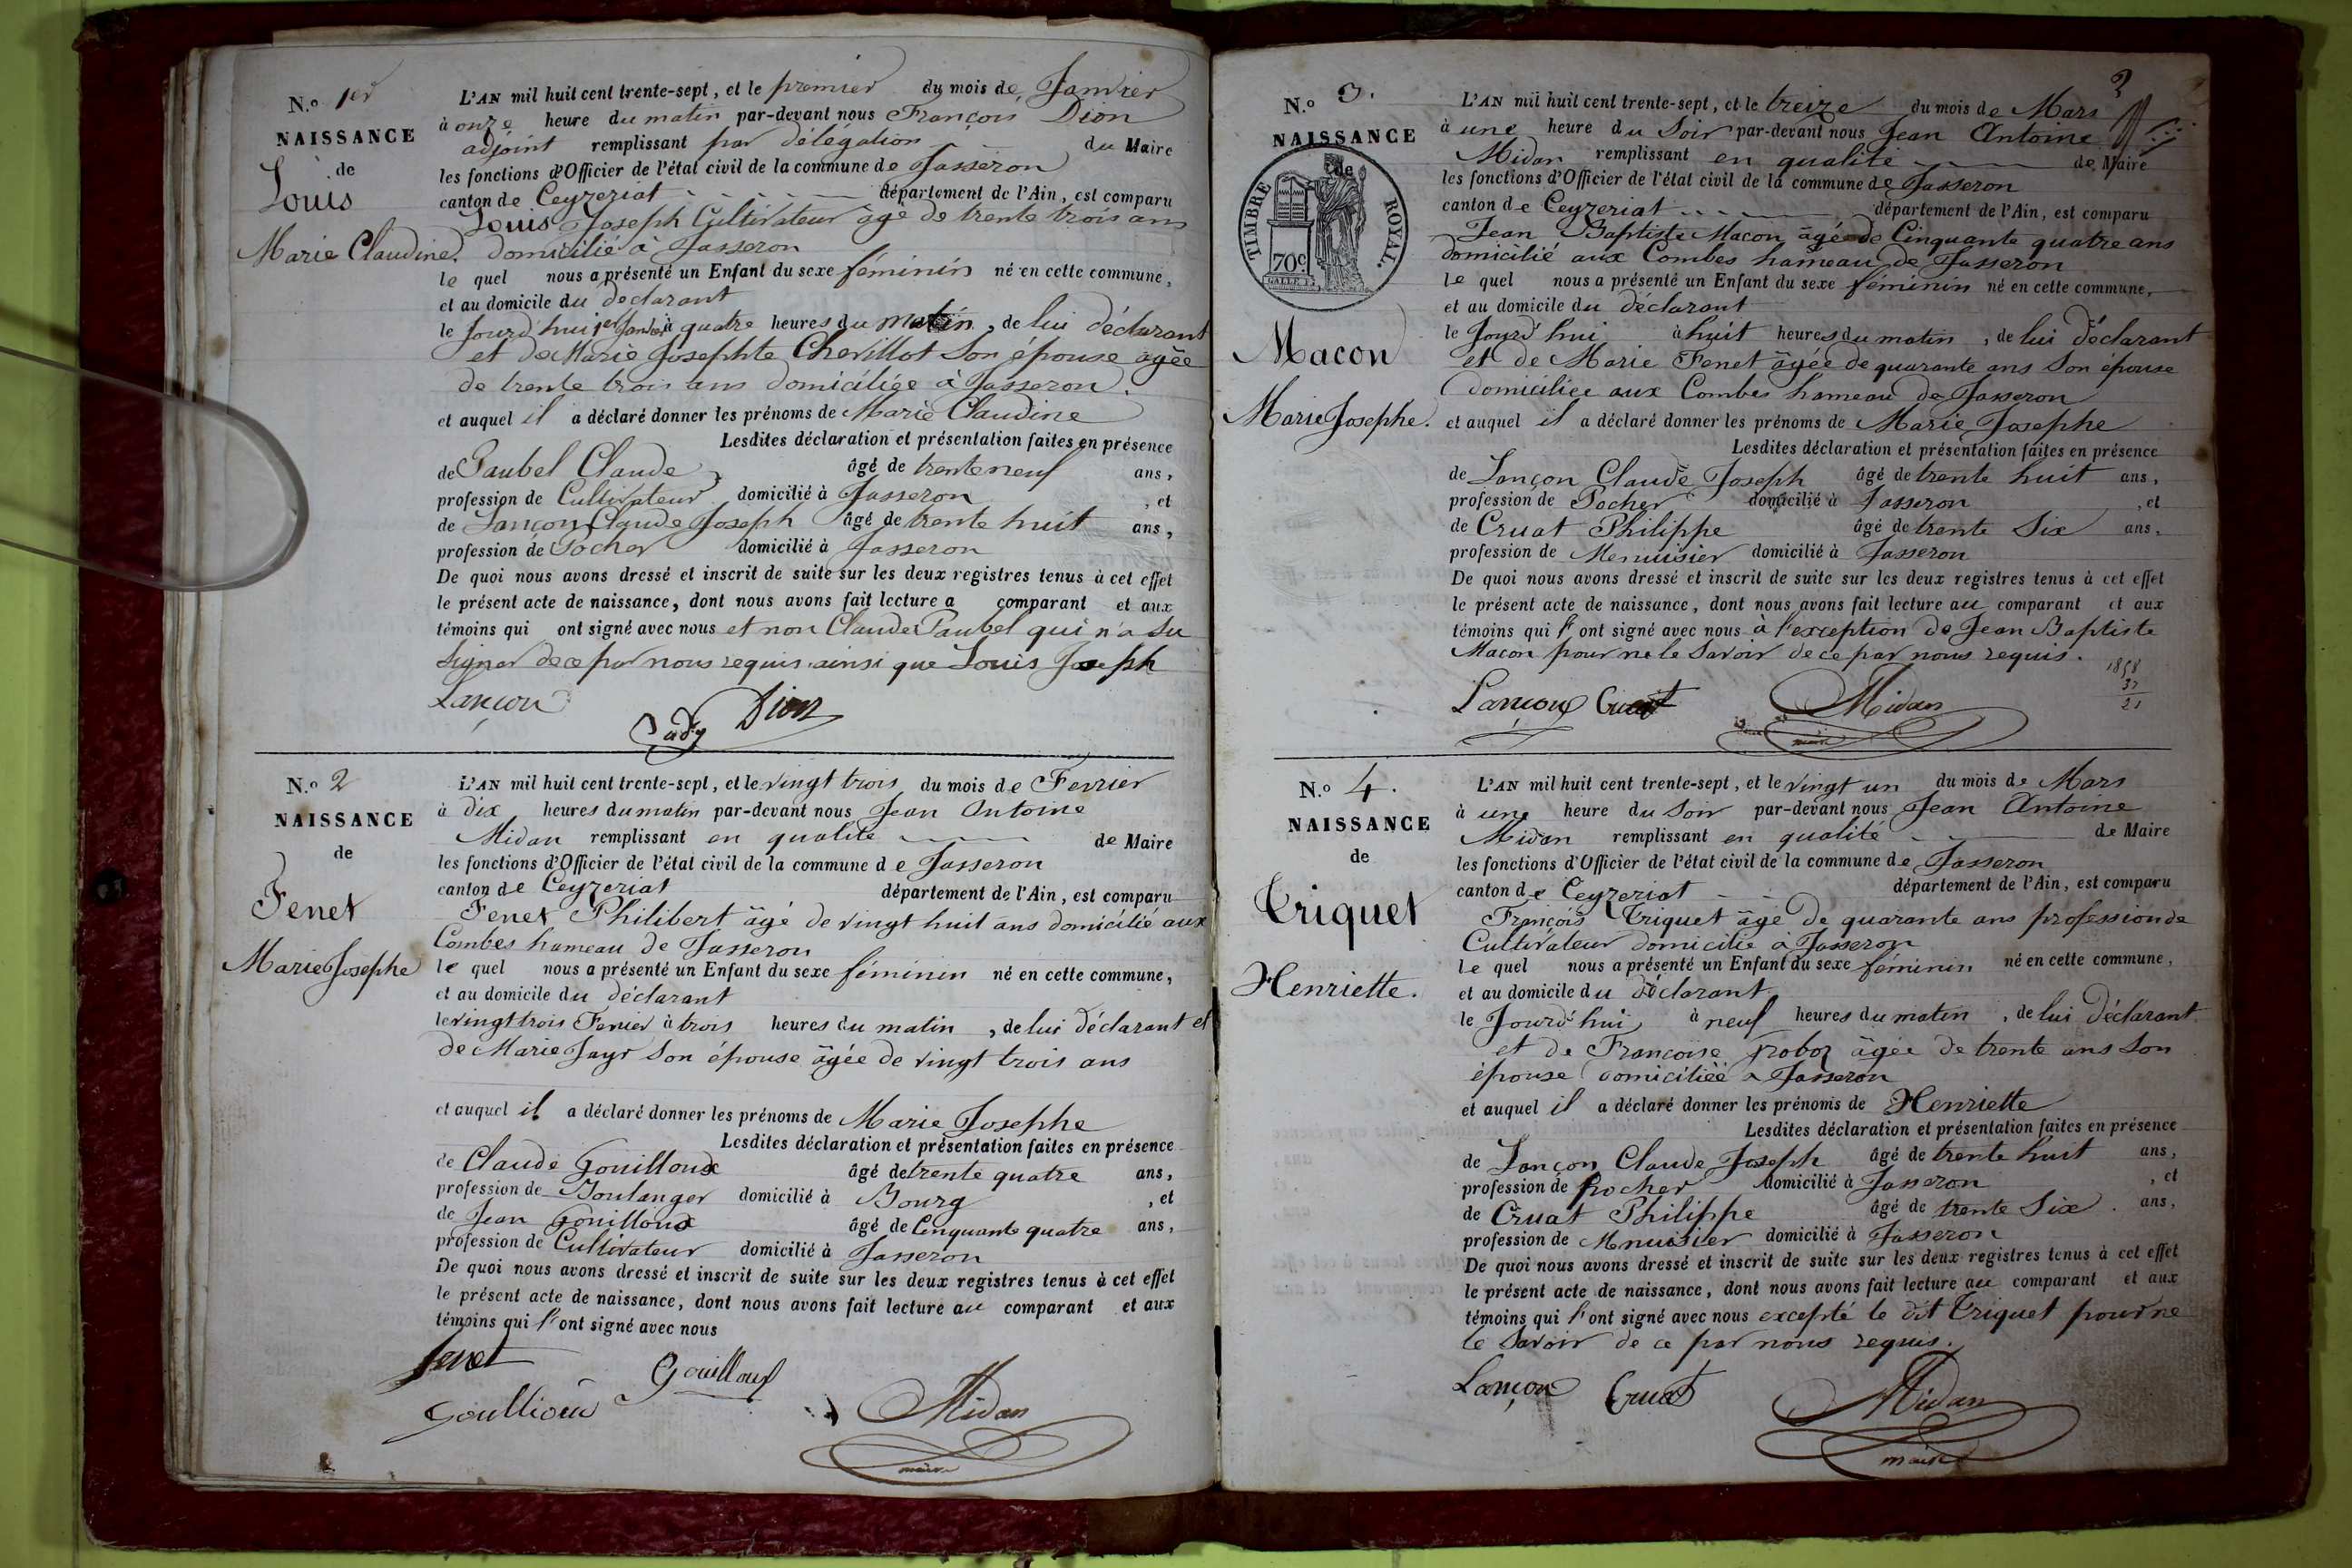 N.o 1er
NAISSANCE
de
Louis
Marie Claudine.
L'AN mil huit cent trente-sept, et le premier du mois de Janvier
à onze heure du matin par-devant nous François Dion
adjoint remplissant par délégation du Maire
les fonctions d'Officier de l'état civil de la commune de Jasseron
canton de Ceyzeriat département de l'Ain, est comparu
Louis Joseph Cultivateur âgé de trente trois ans
domicilié à Jasseron
le quel nous a présenté un Enfant du sexe féminin né en cette commune,
et au domicile du déclarant
le Jourd'hui 1er Janvier à quatre heures du matin, de lui déclarant
et de Marie Josephte Chevillot son épouse âgée
de trente trois ans domiciliée à Jasseron.
et auquel il a déclaré donner les prénoms de Marie Claudine
Lesdites déclaration et présentation faites en présence
de Paubel Claude, âgé de trente neuf ans,
profession de Cultivateur domicilié à Jasseron, et
de Lançon Claude Joseph âgé de trente huit ans,
profession de Pocher domicilié à Jasseron
De quoi nous avons dressé et inscrit de suite sur les deux registres tenus à cet effet
le présent acte de naissance, dont nous avons fait lecture a comparant et aux
témoins qui ont signé avec nous et non Claude Paubel qui n'a su
signer de ce par nous requis ainsi que Louis Joseph
Lançon Dion
adj
N.o 2
NAISSANCE
de
Fenet
Marie Josephe
L'AN mil huit cent trente-sept, et le vingt trois du mois de Fevrier
à dix heures du matin par-devant nous Jean Antoine
Midan remplissant en qualité de Maire
les fonctions d'Officier de l'état civil de la commune de Jasseron
canton de Ceyzeriat département de l'Ain, est comparu
Fenet Philibert âgé de vingt huit ans domicilié aux
Combes hameau de Jasseron
le quel nous a présenté un Enfant du sexe féminin né en cette commune,
et au domicile du déclarant
le vingt trois Fevrier à trois heures du matin, de lui déclarant et
de Marie Jayr son épouse âgée de vingt trois ans
et auquel il a déclaré donner les prénoms de Marie Josephe
Lesdites déclaration et présentation faites en présence
de Claude Gouilloux âgé de trente quatre ans,
profession de Boulanger domicilié à Bourg, et
de Jean Gouilloux âgé de Cinquante quatre ans,
profession de Cultivateur domicilié à Jasseron
De quoi nous avons dressé et inscrit de suite sur les deux registres tenus à cet effet
le présent acte de naissance, dont nous avons fait lecture au comparant et aux
témoins qui l'ont signé avec nous
fenet Gouilloux
Goullioux Midan
maire
2
N.o 3.
NAISSANCE
de
TIMBRE ROYAL.
70c
Macon
Marie Josephe.
L'AN mil huit cent trente-sept, et le treize du mois de Mars
à une heure du Soir par-devant nous Jean Antoine
Midan remplissant en qualité de Maire
les fonctions d'Officier de l'état civil de la commune de Jasseron
canton de Ceyzeriat département de l'Ain, est comparu
Jean Baptiste Macon âgé de Cinquante quatre ans
domicilié aux Combes hameau de Jasseron
le quel nous a présenté un Enfant du sexe féminin né en cette commune,
et au domicile du déclarant
le Jourd'hui à huit heures du matin, de lui déclarant
et de Marie Fenet âgée de quarante ans son épouse
domiciliée aux Combes hameau de Jasseron
et auquel il a déclaré donner les prénoms de Marie Josephe
Lesdites déclaration et présentation faites en présence
de Lançon Claude Joseph âgé de trente huit ans,
profession de Pocher domicilié à Jasseron, et
de Cruat Philippe âgé de trente Six ans,
profession de Menuisier domicilié à Jasseron
De quoi nous avons dressé et inscrit de suite sur les deux registres tenus à cet effet
le présent acte de naissance, dont nous avons fait lecture au comparant et aux
témoins qui l'ont signé avec nous à l'exception de Jean Baptiste
Macon pour ne le savoir de ce par nous requis.
1858
37
21
Lançon Cruat Midan
maire
N.o 4.
NAISSANCE
de
Triquet
Henriette.
L'AN mil huit cent trente-sept, et le vingt un du mois de Mars
à une heure du Soir par-devant nous Jean Antoine
Midan remplissant en qualité de Maire
les fonctions d'Officier de l'état civil de la commune de Jasseron
canton de Ceyzeriat département de l'Ain, est comparu
François Triquet âgé de quarante ans profession de
Cultivateur domicilié à Jasseron
le quel nous a présenté un Enfant du sexe féminin né en cette commune,
et au domicile du déclarant
le Jourd'hui à neuf heures du matin, de lui déclarant
et de Francoise âgée de trente ans son
épouse domiciliée à Jasseron
et auquel il a déclaré donner les prénoms de Henriette
Lesdites déclaration et présentation faites en présence
de Lançon Claude Joseph âgé de trente huit ans,
profession de Pocher domicilié à Jasseron, et
de Cruat Philippe âgé de trente Six. ans,
profession de Mnuisier domicilié à Jasseron
De quoi nous avons dressé et inscrit de suite sur les deux registres tenus à cet effet
le présent acte de naissance, dont nous avons fait lecture au comparant et aux
témoins qui l'ont signé avec nous excepté le dit Triquet pour ne
le savoir de ce par nous requis.
Lançon Cruat Midan
maire